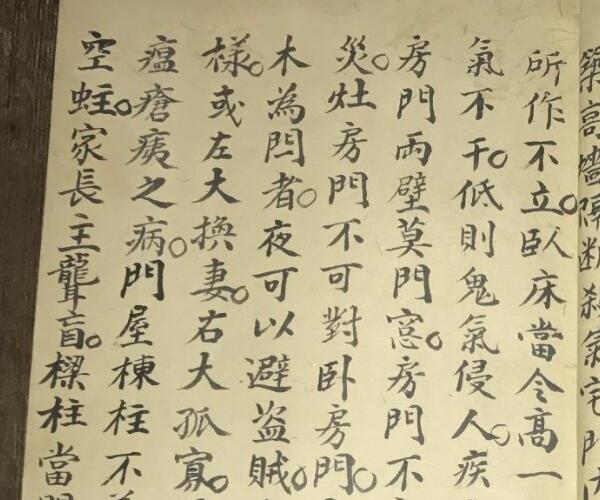 高墻陳断殺氣宅門
所作不立。臥床當令高一
氣不干。低則鬼氣侵人。疾
房門兩壁莫門窓。房門不
災。灶房門不可對卧房門。
木為閂者。夜可以避盗賊。
樣。或左大換妻。右大孤寡。
瘟瘡痍之病。門屋棟柱不
空蛀。家長主聾盲。樑柱當